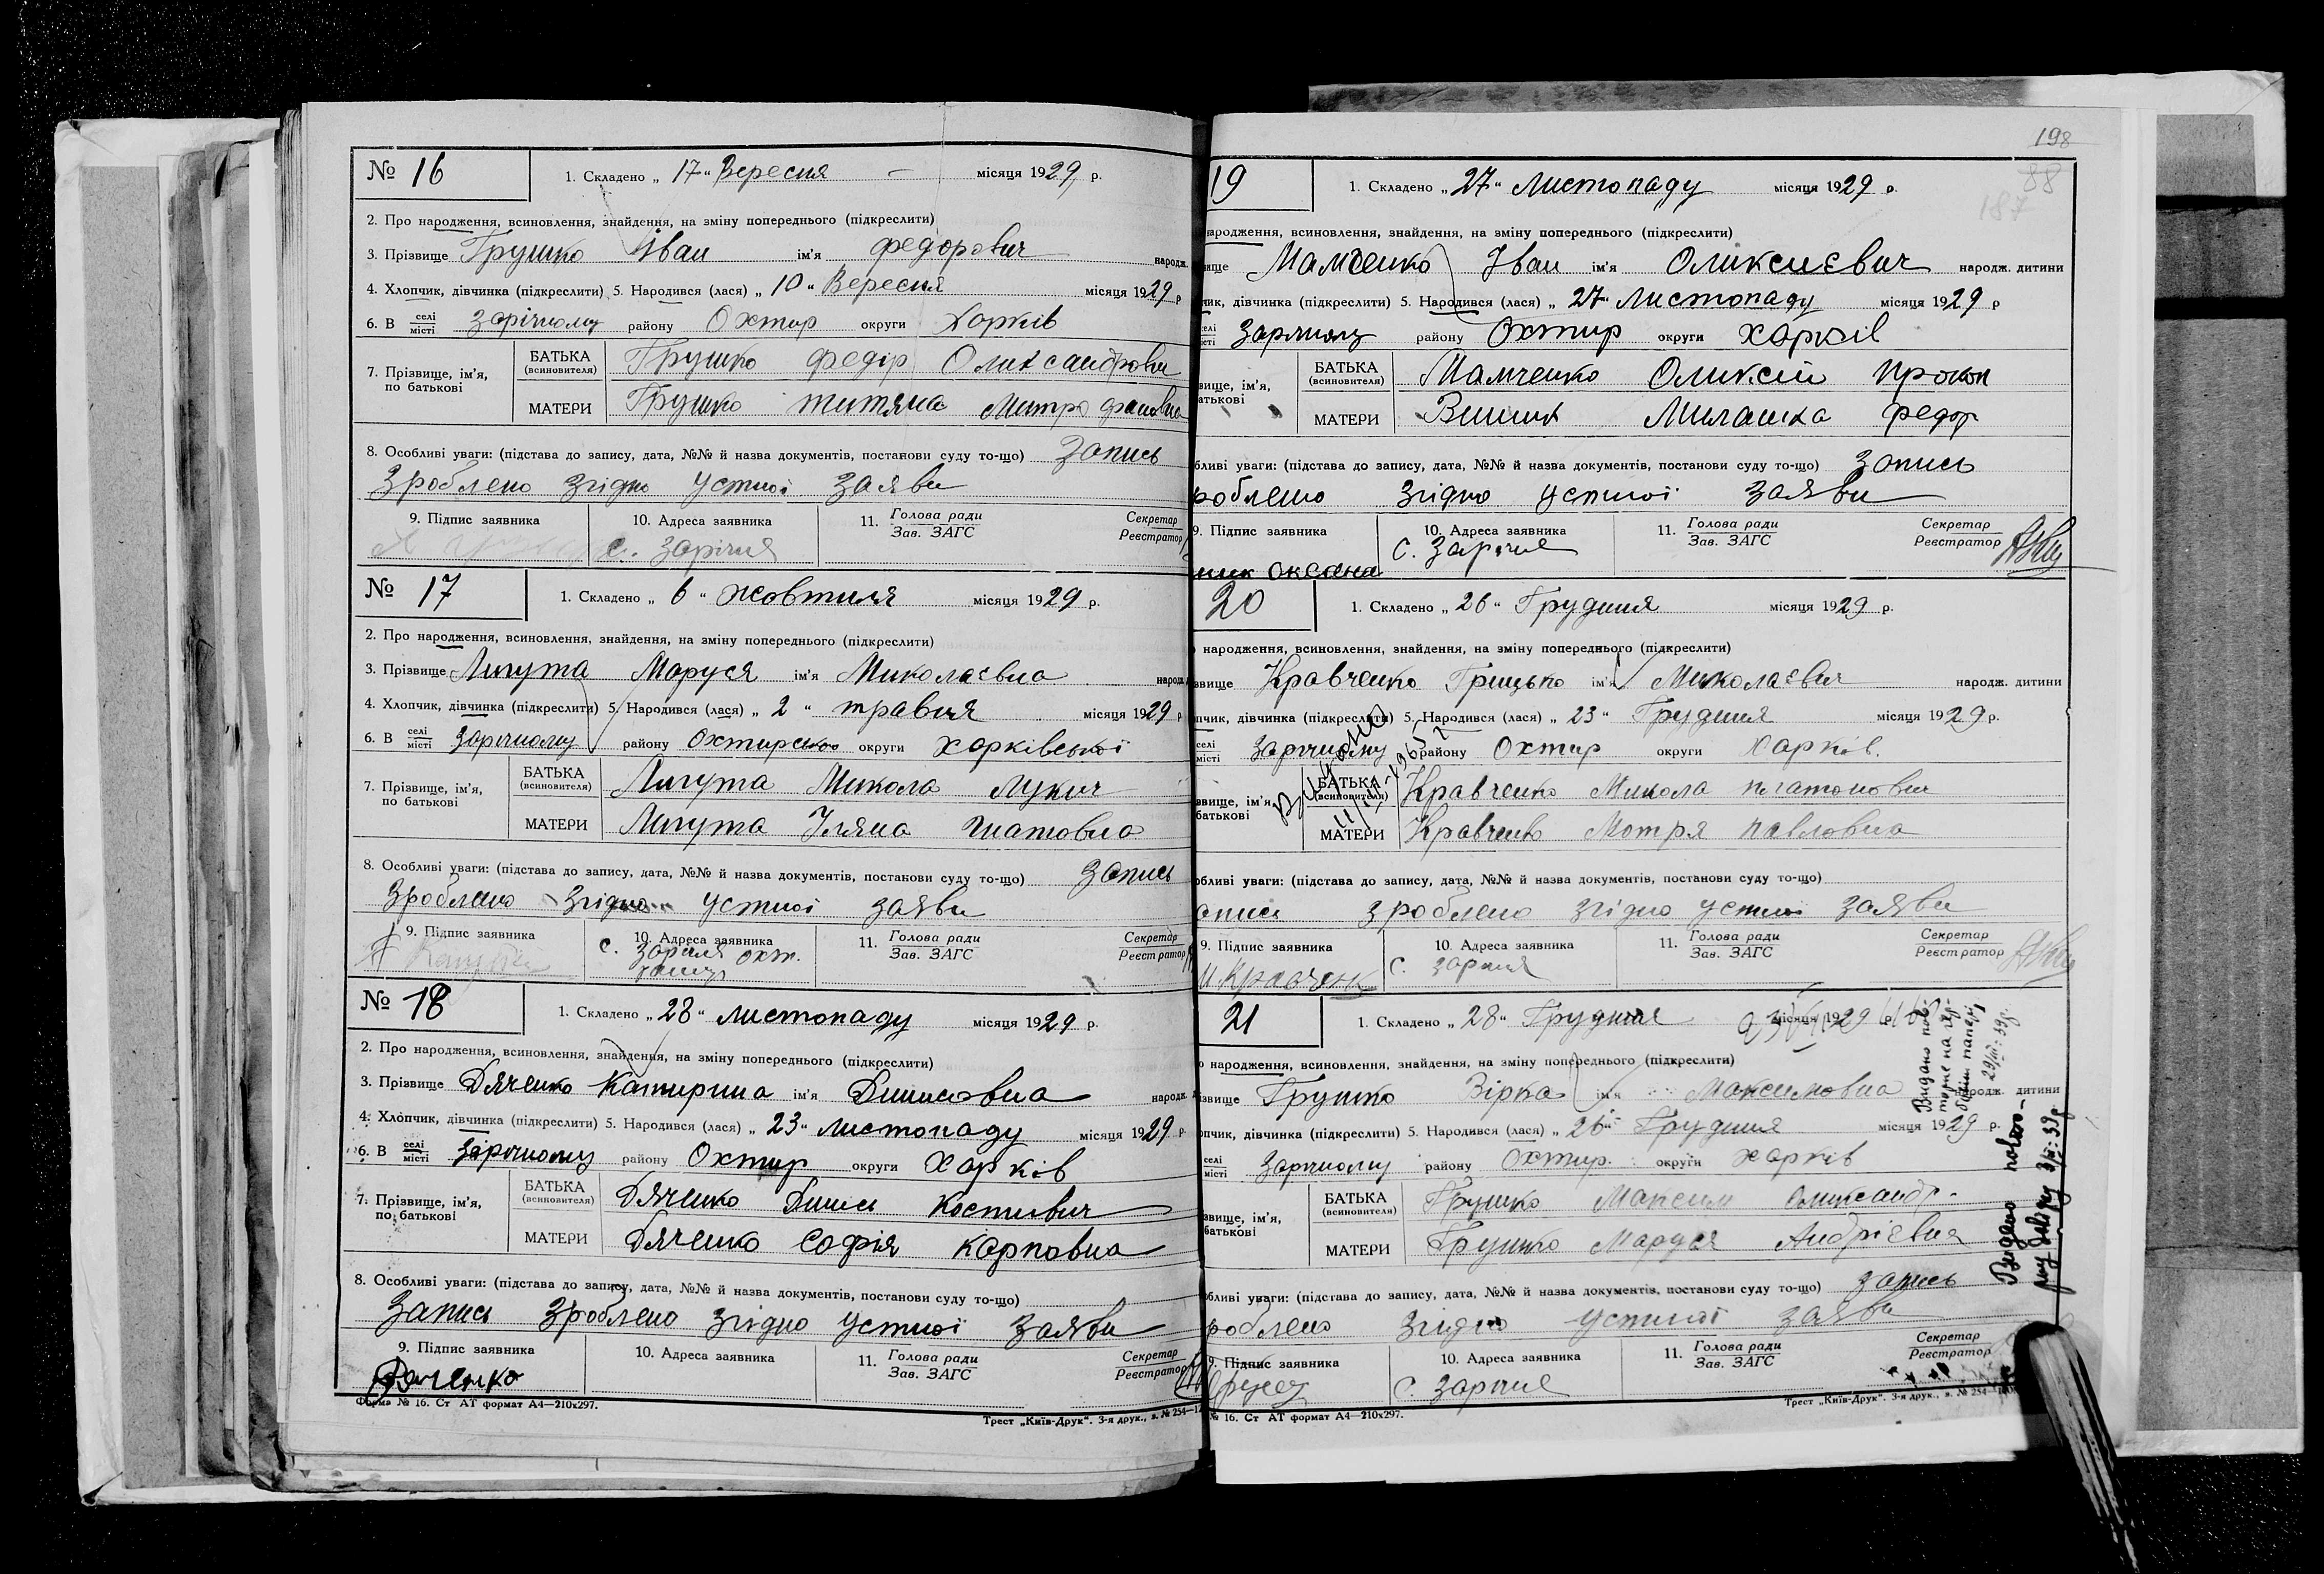 № 16
1. Складено „ 17 “ Вересня — місяця 1929 р.
2. Про народження, всиновлення, знайдення, на зміну попереднього (підкреслити)
3. Прізвище Грушко Іван ім'я Федорович народж.
4. Хлопчик, дівчинка (підкреслити) 5. Народився (лася) „ 10 “ Вересня місяця 1929 р
6. В селі місті Зарічному району Охтир округи Харків
7. Прізвище, ім'я, по батькові
БАТЬКА (всиновителя) Грушко Федір Олександрови
МАТЕРИ Грушко титяна Митрофановна
8. Особливі уваги: (підстава до запису, дата, №№ й назва документів, постанови суду то-що) Запись
Зроблено Згідно Устної Заяви
9. Підпис заявника 10. Адреса заявника 11. Голова ради Зав. ЗАГС Секретар Реєстратор
с. Зарічня
№ 17
1. Складено „ 6 “ жовтня місяця 1929 р.
2. Про народження, всиновлення, знайдення, на зміну попереднього (підкреслити)
3. Прізвище Лигута Маруся ім'я Миколаєвна народж.
4. Хлопчик, дівчинка (підкреслити) 5. Народився (лася) „ 2 “ травня місяця 1929 р
6. В селі місті Зарічному району Охтирсько округи Харківської
7. Прізвище, ім'я, по батькові
БАТЬКА (всиновителя) Лигута Микола Лукич
МАТЕРИ Лигута Уляна
8. Особливі уваги: (підстава до запису, дата, №№ й назва документів, постанови суду то-що) Запись
Зроблено Згідно Устної Заяви
9. Підпис заявника 10. Адреса заявника 11. Голова ради Зав. ЗАГС Секретар Реєстратор
с. Зарічня Охт.
№ 18
1. Складено „ 28 “ листопаду місяця 1929 р.
2. Про народження, всиновлення, знайдення, на зміну попереднього (підкреслити)
3. Прізвище Дяченко Катирина ім'я Динисовна народж.
4. Хлопчик, дівчинка (підкреслити) 5. Народився (лася) „ 23 “ листопаду місяця 1929 р
6. В селі місті Зарічному району Охтир округи Харків
7. Прізвище, ім'я, по батькові
БАТЬКА (всиновителя) Дяченко Динис Костиович
МАТЕРИ Дяченко Софія Карповна
8. Особливі уваги: (підстава до запису, дата, №№ й назва документів, постанови суду то-що)
Запись Зроблено Згідно Устної Заяви
9. Підпис заявника 10. Адреса заявника 11. Голова ради Зав. ЗАГС Секретар Реєстратор
Дяченко
Форма № 16. Ст АТ формат А4—210х297.
Трест „Київ-Друк“. 3-я друк., з. № 254—12
198
88
187
19
1. Складено „ 27 “ Листопаду місяця 1929 р.
народження, всиновлення, знайдення, на зміну попереднього (підкреслити)
вище Мамченко Іван ім'я Оликсиєвич народж. дитини
чик, дівчинка (підкреслити) 5. Народився (лася) „ 27 “ Листопаду місяця 1929 р
селі місті Зарічному району Охтир округи Харків
вище, ім'я, батькові
БАТЬКА (всиновителя) Мамченко Оликсій Прокоп
МАТЕРИ Милашка Федор
бливі уваги: (підстава до запису, дата, №№ й назва документів, постанови суду то-що) Запись
роблено Згідно Устної Заяви
9. Підпис заявника 10. Адреса заявника 11. Голова ради Зав. ЗАГС Секретар Реєстратор
с. Зарічня
ник Оксана
20
1. Складено „ 26 “ Грудния місяця 1929 р.
народження, всиновлення, знайдення, на зміну попереднього (підкреслити)
звище Кравченко Грицько ім'я Миколаєвич народж. дитини
пчик, дівчинка (підкреслити) 5. Народився (лася) „ 23 “ Грудния місяця 1929 р.
селі місті Зарічному району Охтир округи Харків.
звище, ім'я, батькові
БАТЬКА (всиновителя) Кравченко Микола Платонови
МАТЕРИ Кравченко Мотря Павловна
бливі уваги: (підстава до запису, дата, №№ й назва документів, постанови суду то-що)
апись зроблено згідно устної Заяви
9. Підпис заявника 10. Адреса заявника 11. Голова ради Зав. ЗАГС Секретар Реєстратор
М. Кравченк с. Зарічня
21
1. Складено „ 28 “ Грудния місяця 1929 р.
народження, всиновлення, знайдення, на зміну попереднього (підкреслити)
ізвище Грушко Вірка ім'я Максимовна народж. дитини
опчик, дівчинка (підкреслити) 5. Народився (лася) „ 26 “ Грудния місяця 1929 р.
селі місті Зарічному району Охтир. округи Харків
звище, ім'я, батькові
БАТЬКА (всиновителя) Грушко Максим Олександр.
МАТЕРИ Грушко Маруся Андрієвна
бливі уваги: (підстава до запису, дата, №№ й назва документів, постанови суду то-що) запись
роблено Згідно Устної Заяви
9. Підпис заявника 10. Адреса заявника 11. Голова ради Зав. ЗАГС Секретар Реєстратор
с. Зарічня
№ 16. Ст АТ формат А4—210х297.
Трест „Київ-Друк“. 3-я друк., з. № 254